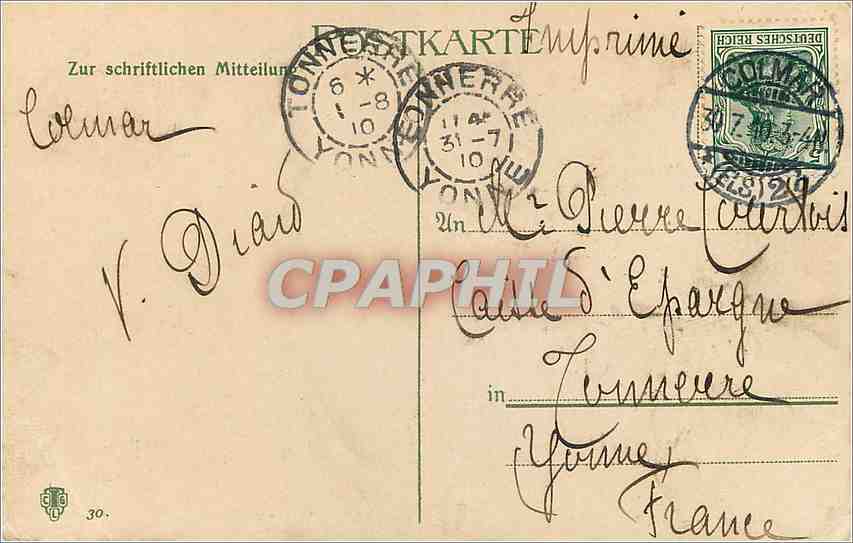 POSTKARTE
Imprimé
DEUTSCHES REICH
Zur schriftlichen Mitteilung
TONNERRE
6 *
1-8
10
YONNE
TONNERRE
31-7
10
YONNE
COLMAR
(ELS) 2
Colmar
V. Diard
An Mr. Pierre Courtois
Caisse d'Epargne
in Tonnerre
Yonne,
France
CPAPHIL
C G
L
30.